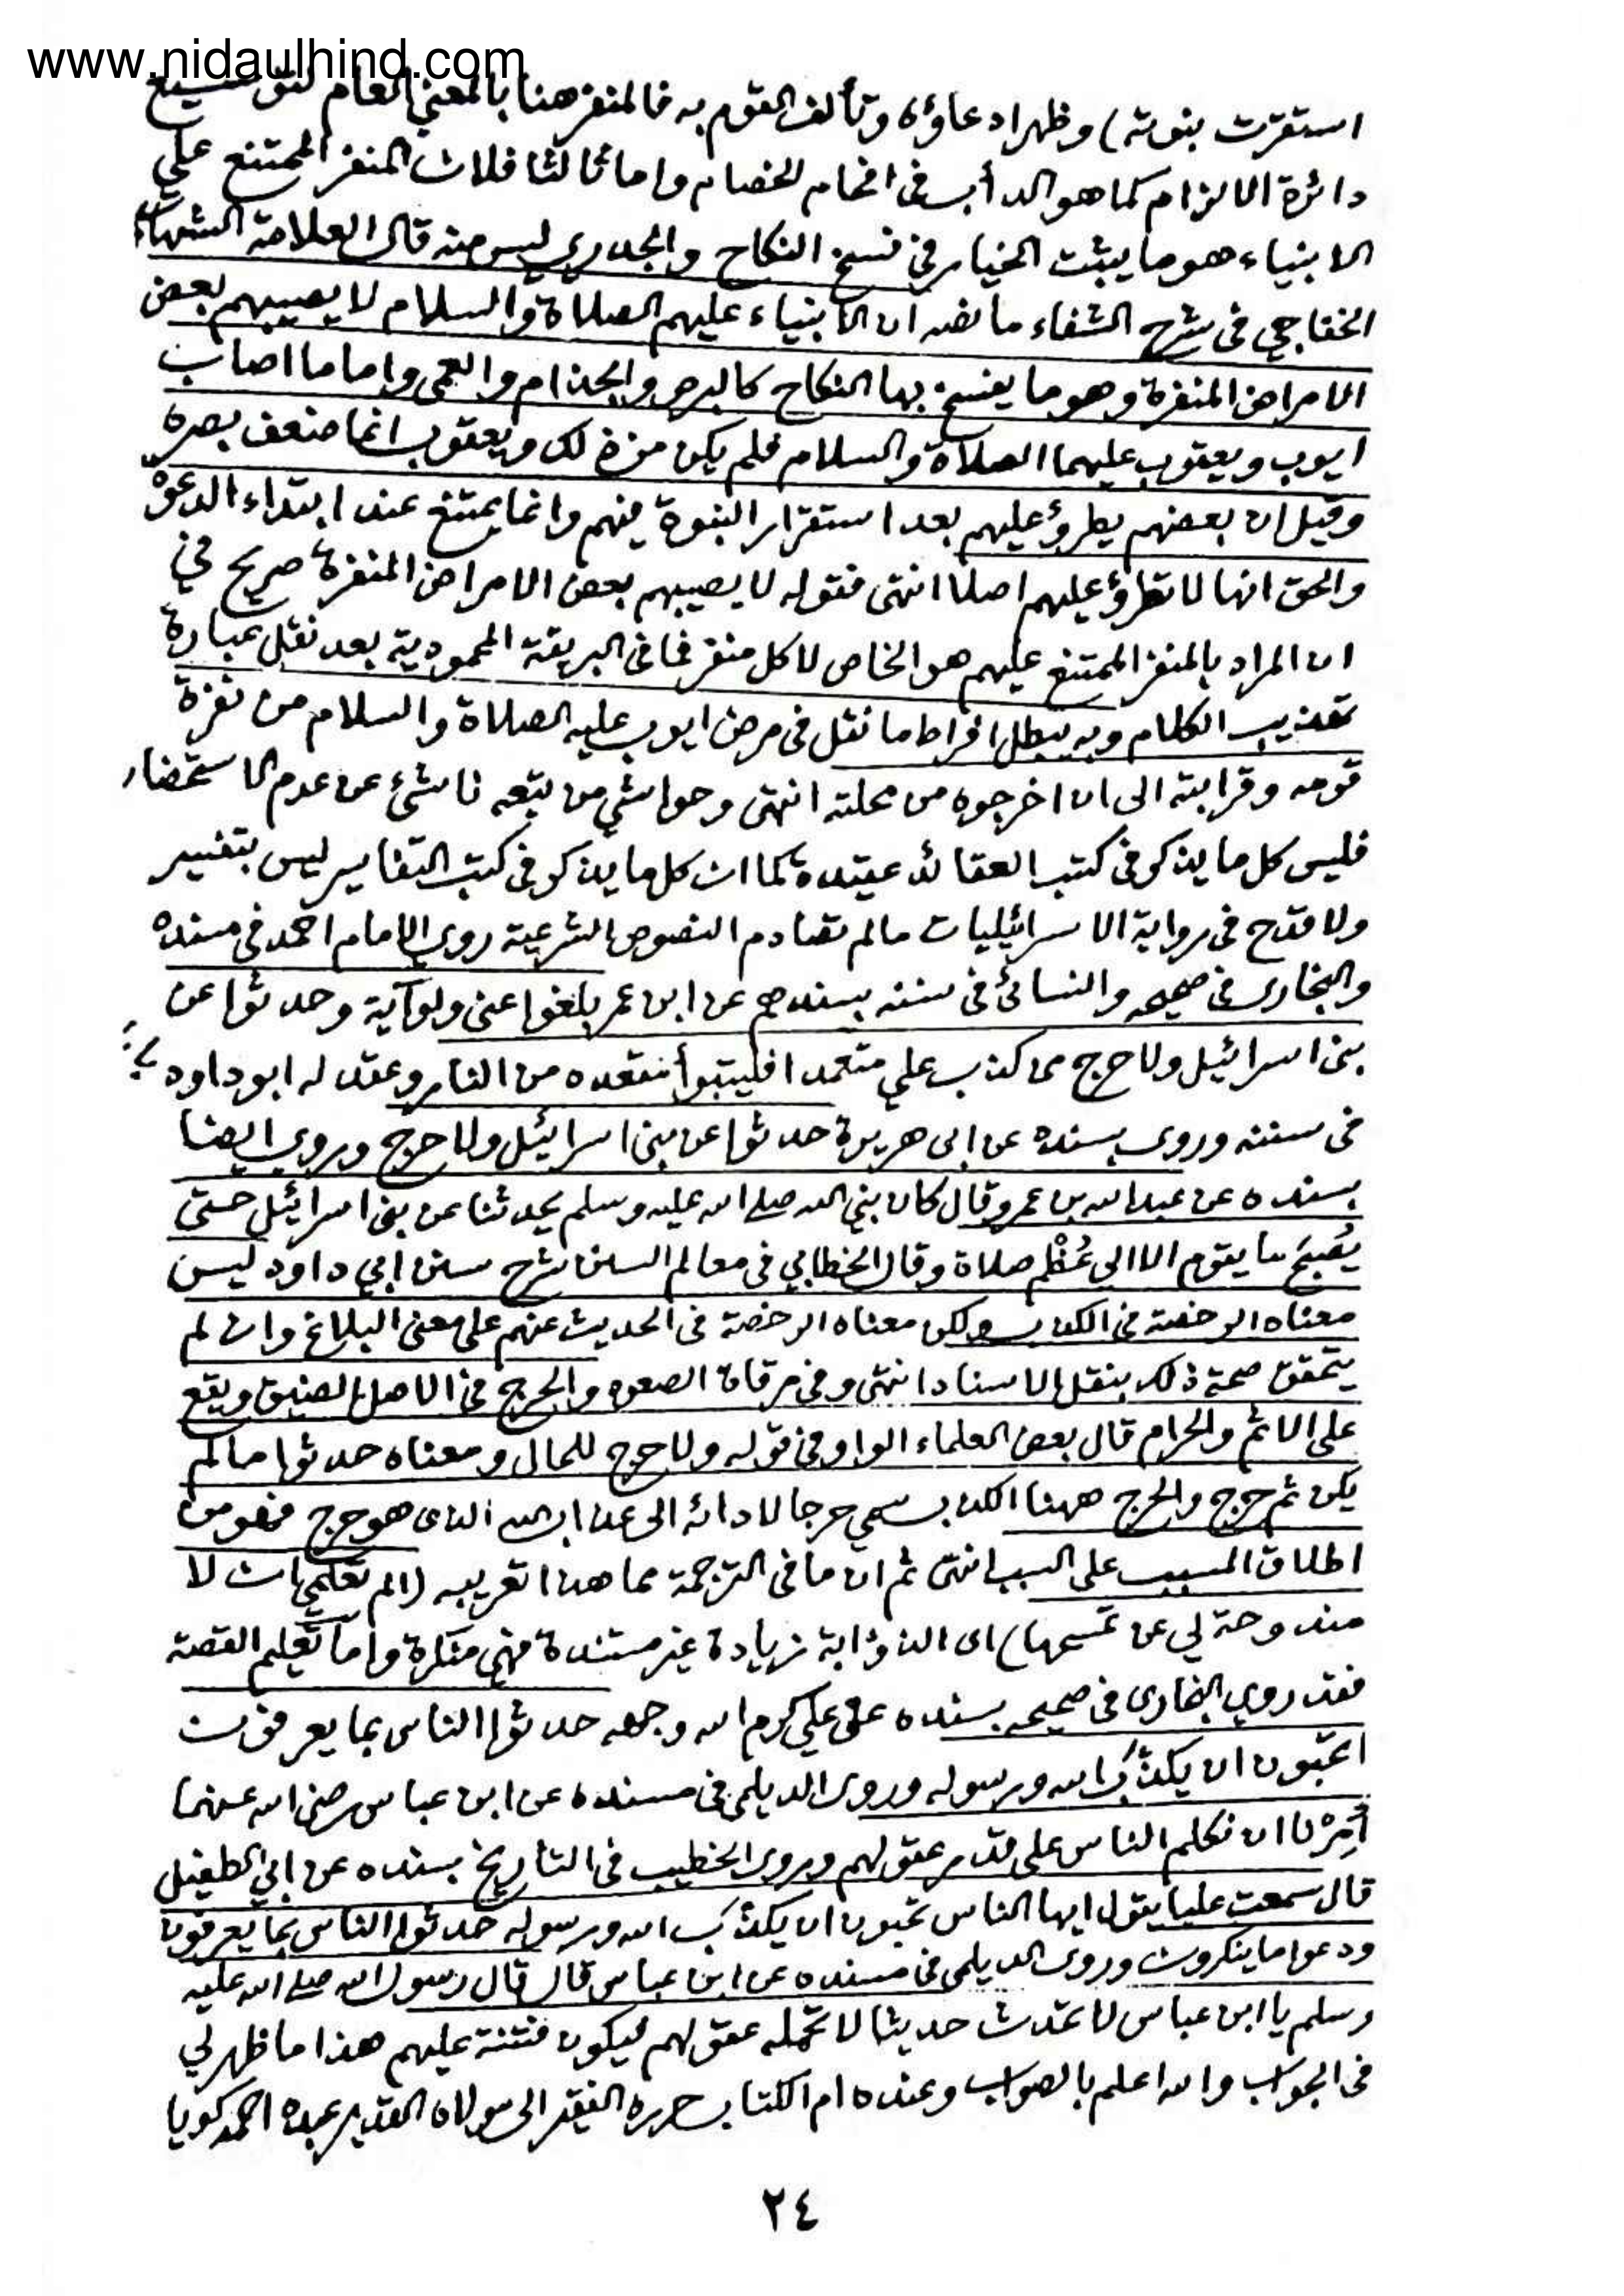 www.nidaulhind.com
استقرت بنوته) وظهر ادعاؤه وتألف القوم به فالمنفر هنا بالمعنى العام لتوسيع
دائرة الالزام كما هو الدأب فى افحام الخصام واما ثالثا فلان المنفر الممتنع على
الانبياء هو ما يثبت الخيار في فسخ النكاح والجدري ليس منه قال العلامة الشهاب
الخفاجي فى شرح الشفاء ما نصه ان الانبياء عليهم الصلاة والسلام لا يصيبهم بعض
الامراض المنفرة وهو ما يفسخ بها النكاح كالبرص والجذام والعمى واما ما اصاب
ايوب ويعقوب عليهما الصلاة والسلام فلم يكن من ذلك ويعقوب انما ضعف بصره
وقيل ان بعضهم يطرؤ عليهم بعد استقرار النبوة فيهم وانما يمتنع عند ابتداء الدعوة
والحق انها لا تطرؤ عليهم اصلا انتهى فقوله لا يصيبهم بعض الامراض المنفرة صريح في
ان المراد بالمنفر الممتنع عليهم هو الخاص لا كل منفر فما فى البريقة المحمودية بعد نقل عبارة
تهذيب الكلام وبه يبطل افراط ما نقل فى مرض ايوب عليه الصلاة والسلام من نفرة
قومه وقرابته الى ان اخرجوه من محلته انتهى وحواشي من تبعه ناشئ عن عدم الاستحضار
فليس كل ما يذكر فى كتب العقائد عقيدة كما ان كل ما يذكر فى كتب التفاسير ليس بتفسير
ولا قدح فى رواية الاسرائيليات ما لم تصادم النصوص الشرعية روى الامام احمد فى مسنده
والبخارى فى صحيحه والنسائى فى سننه بسندهم عن ابن عمر بلغوا عنى ولو آية وحدثوا عن
بنى اسرائيل ولا حرج من كذب علي متعمدا فليتبوأ مقعده من النار وعقد له ابو داود
فى سننه وروى بسنده عن ابى هريرة حدثوا عن بنى اسرائيل ولا حرج وروى ايضا
بسنده عن عبد الله بن عمرو قال كان نبي الله صلى الله عليه وسلم يحدثنا عن بنى اسرائيل حتى
يُصْبِحَ ما يقوم الا الى عُظْمِ صلاة وقال الخطابي فى معالم السنن شرح سنن ابي داود ليس
معناه الرخصة فى الكذب ولكن معناه الرخصة فى الحديث عنهم على معنى البلاغ وان لم
يتحقق صحة ذلك بنقل الاسناد انتهى وفى مرقاة الصعود والحرج فى الاصل الضيق ويقع
على الاثم والحرام قال بعض العلماء الواو فى قوله ولا حرج للحال ومعناه حدثوا ما لم
يكن ثم حرج والحرج ههنا الكذب سمي حرجا لادائه الى عذاب الله الذى هو حرج فهو من
اطلاق المسبب على السبب انتهى ثم ان ما فى الترجمة مما هذا تعريبه (الم تعلمي ان لا
مندوحة لي عن تمسحها) اى الذؤابة زيادة غير مستندة فهي منكرة واما تعليم القصة
فقد روى البخارى فى صحيحه بسنده عن علي كرم الله وجهه حدثوا الناس بما يعرفون
اتحبون ان يكذّب الله ورسوله وروى الديلمى فى مسنده عن ابن عباس رضى الله عنهما
أُمِرْنا ان نكلم الناس على قدر عقولهم وروى الخطيب فى التاريخ بسنده عن ابي الطفيل
قال سمعت عليا يقول ايها الناس تحبون ان يكذّب الله ورسوله حدثوا الناس بما يعرفون
ودعوا ما ينكرون وروى الديلمى فى مسنده عن ابن عباس قال قال رسول الله صلى الله عليه
وسلم يا ابن عباس لا تحدث حديثا لا تحمله عقولهم ليكون فتنة عليهم هذا ما ظهر لي
فى الجواب والله اعلم بالصواب وعنده ام الكتاب حرره الفقير الى مولاه القدير عبده احمد كويا
٢٤